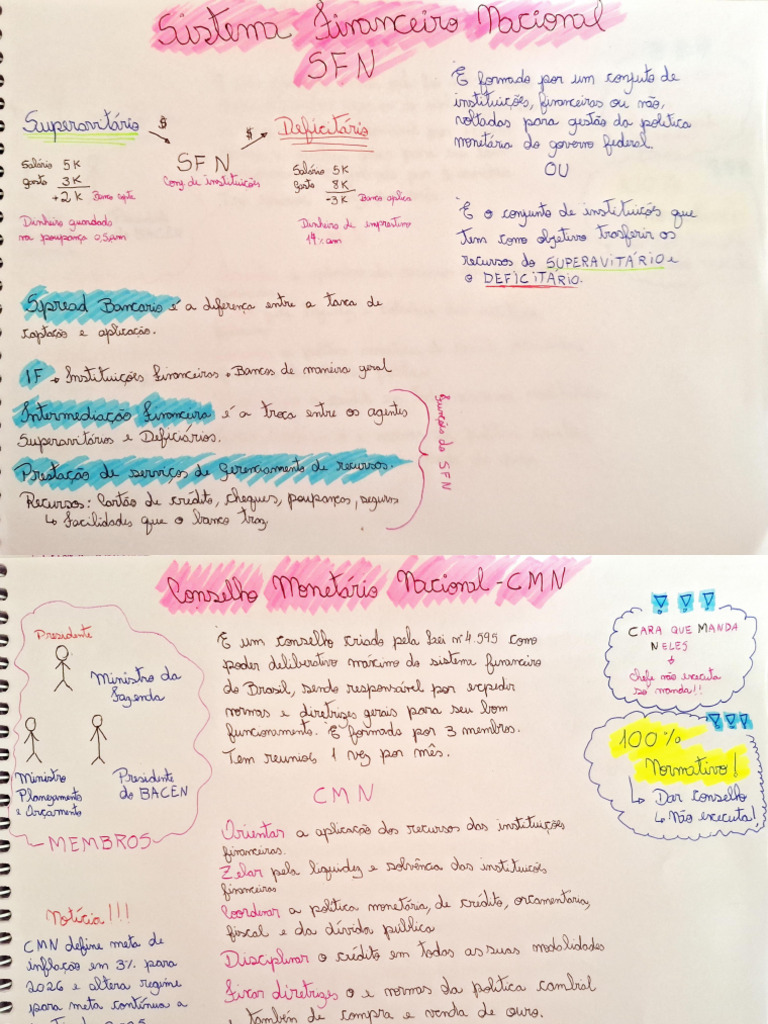 Sistema Financeiro Nacional
SFN
Superavitário
$
SFN
Conj. de instituições
$
Deficitário
Salário 5K
gasto 3K
+2K Banco capte
Dinheiro guardado
na poupança 0,5%am
Salário 5K
Gasto 8K
-3K Banco aplica
Dinheiro de emprestimo
14% am
É formado por um conjuto de
instituições, financeiras ou não,
voltadas para gestão da politica
monetária do governo federal.
OU
É o conjunto de instituições que
tem como objetivo trasferir os
recursos do SUPERAVITÁRIO e
o DEFICITÁRIO.
Spread Bancario é a diferença entre a taxa de
captação e aplicação.
IF → Instituições financeiras • Bancos de maneira geral
Intermediação Financeira é a troca entre os agentes
Superavitários e Deficiários.
Prestação de serviços de Gerenciamento de recursos.
Recursos: Cartão de crédito, cheques, poupanças, seguros
↳ Facilidades que o banco traz.
Funções do SFN
Conselho Monetário Nacional - CMN
Presidente
Ministro da
Fazenda
Ministro
Planejamento
e Orçamento
Presidente
do BACEN
MEMBROS
É um conselho criado pela Lei nº 4.595 como
poder deliberativo máximo do sistema financeiro
do Brasil, sendo responsável por expedir
normas e diretrizes gerais para seu bom
funcionamento. É formado por 3 membros.
Tem reuniõs 1 vez por mês.
CARA QUE MANDA
NELES
↓
Chefe não executa
só manda!!
100%
Normativo!
↳ Dar conselho
↳ Não executa!
CMN
Orientar a aplicação dos recursos das instituições
financeiras.
Zelar pela liquidez e solvência das instituicões
financeiras
Coordenar a politica monetária, de crédito, orcamentaria,
fiscal e da dívidar pública
Disciplinar o crédito em todas as suas modalidades
Fixar diretrizes o e normas da politica cambial
e também de compra e venda de ouro.
Notícia!!!
CMN define meta de
inflação em 3% para
2026 e altera regime
para meta contínua a